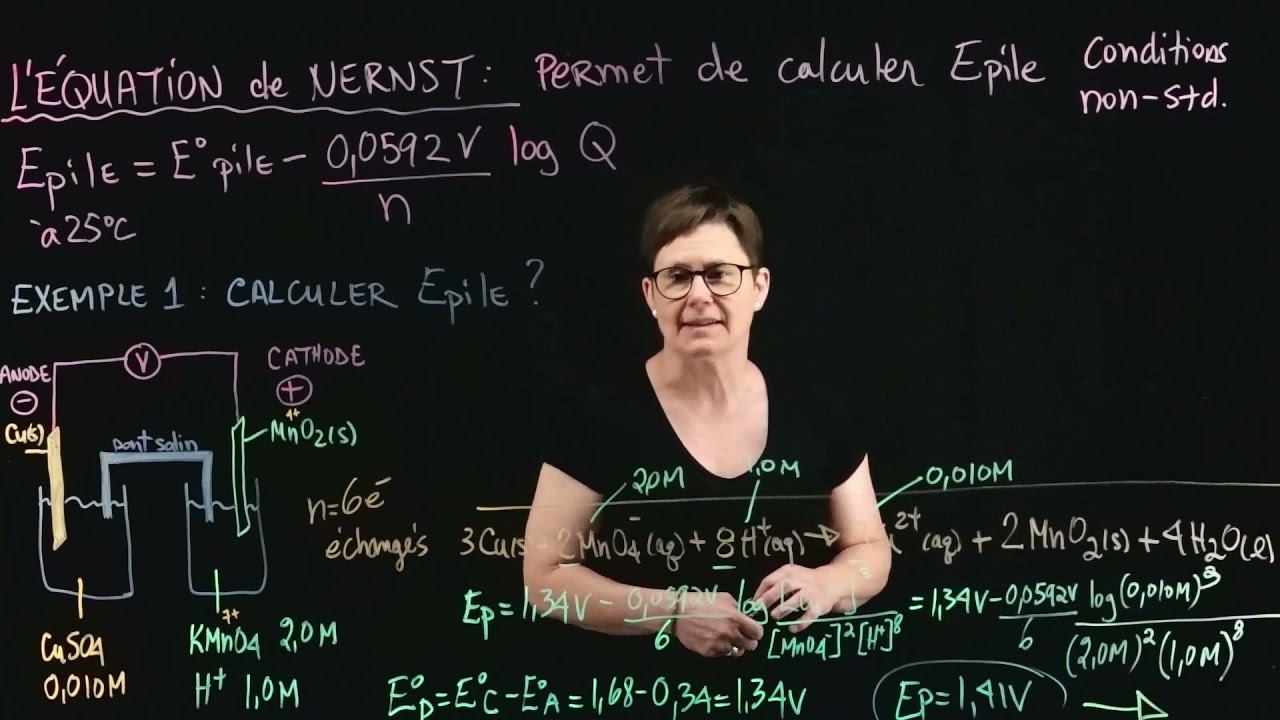 L'ÉQUATION de NERNST : PERMET de calculer Epile
Conditions
non-std.
Epile = E° pile - 0,0592V/n log Q
à 25°C
EXEMPLE 1 : CALCULER Epile ?
ANODE
⊖
V
CATHODE
⊕
Cu(s)
4+
MnO2(s)
pont salin
n=6e⁻
échangés
2,0M
1,0M
0,010M
3Cu(s) + 2MnO4⁻(aq) + 8H⁺(aq) → ²⁺(aq) + 2MnO2(s) + 4H2O(l)
Ep = 1,34V - 0,0592V/6 log [ ]³/[MnO4⁻]²[H⁺]⁸ = 1,34V - 0,0592V/6 log (0,010M)³/(2,0M)²(1,0M)⁸
CuSO4
0,010M
7+
KMnO4 2,0M
H⁺ 1,0M
E°p = E°C - E°A = 1,68 - 0,34 = 1,34V
Ep = 1,41V →